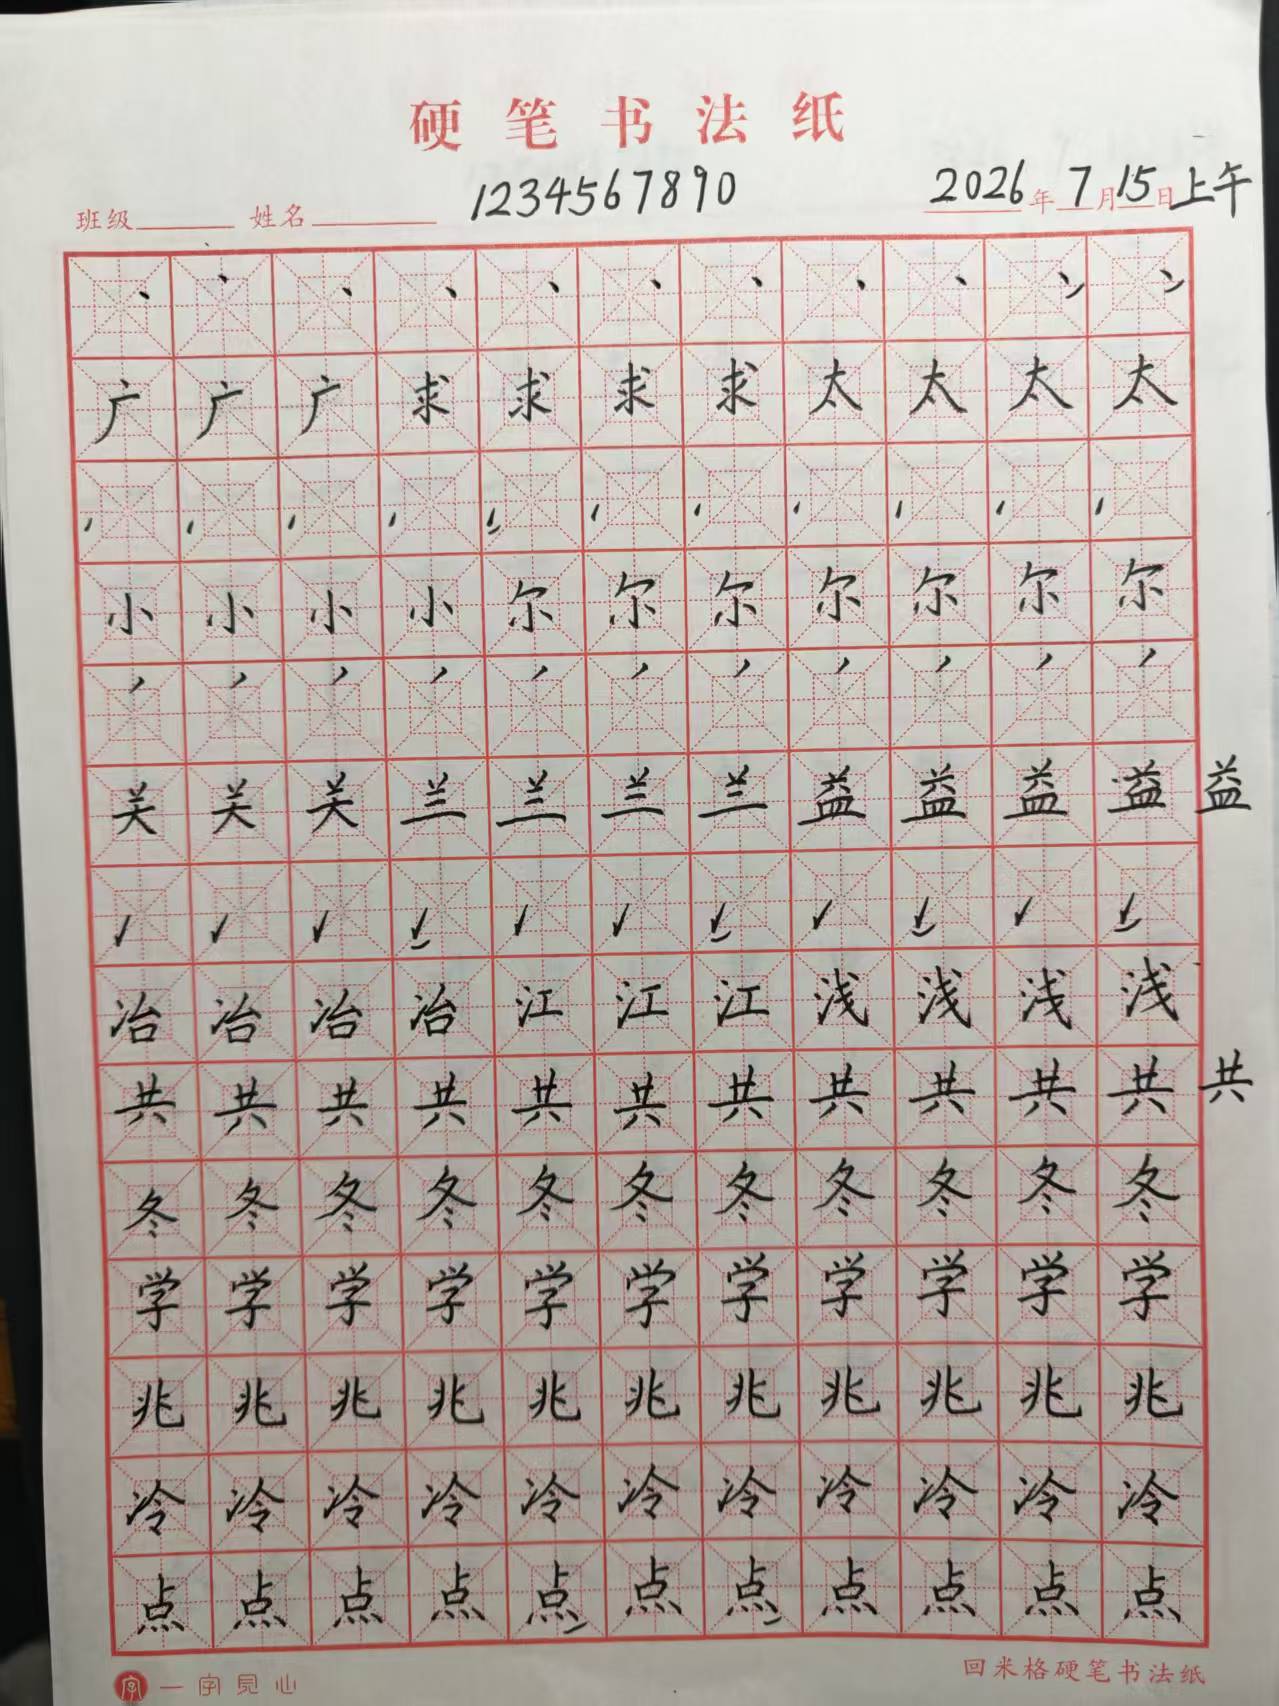 硬笔书法纸
班级 姓名 1234567890 2026年7月15日上午
丶丶丶丶丶丶丶丶丶丶丶
广广广求求求求太太太太
小小小小尔尔尔尔尔尔尔
关关关兰兰兰兰益益益益益
冶冶冶冶江江江浅浅浅浅
共共共共共共共共共共共共
冬冬冬冬冬冬冬冬冬冬冬
学学学学学学学学学学学
兆兆兆兆兆兆兆兆兆兆兆
冷冷冷冷冷冷冷冷冷冷冷
点点点点点点点点点点点
字 一字见心 回米格硬笔书法纸